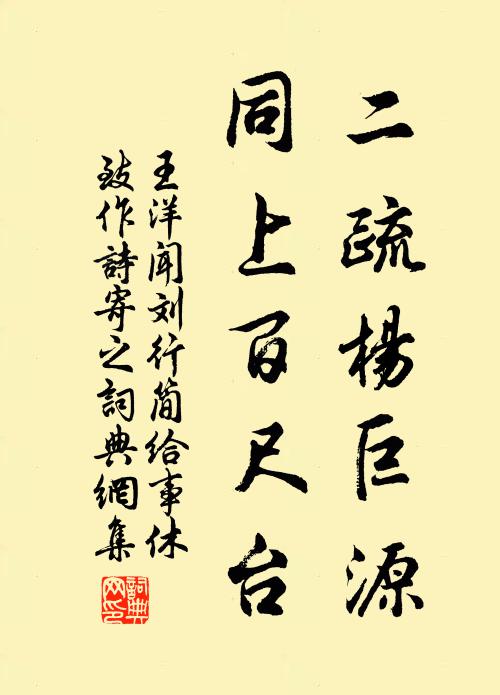 二疏楊巨源
同上百尺台
王洋闻刘行简给事休
致作詩寄之詞典網集
詞典网印